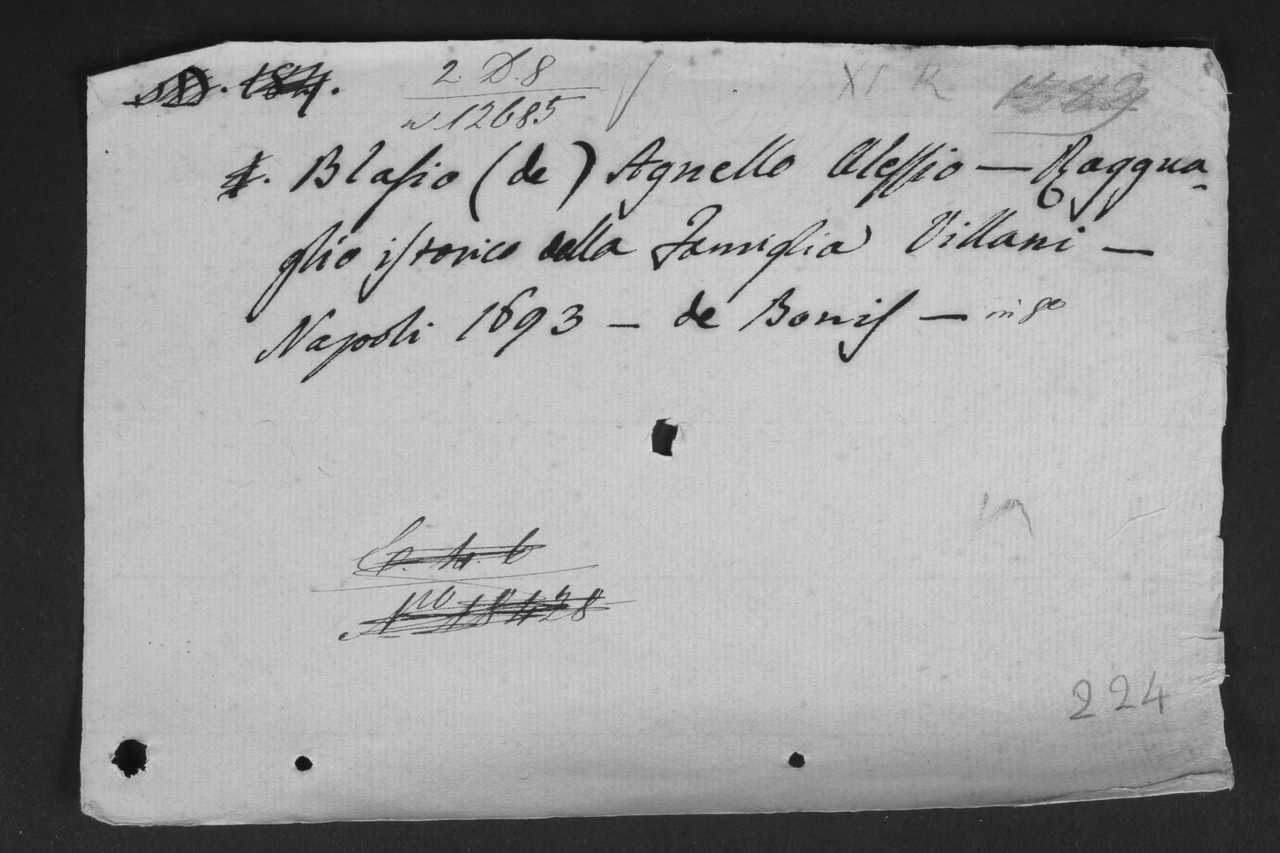 2. D. 8
XI R
1589
n 12685
‡. Blasio (de) Agnello Alessio — Raggua-
glio istorico della Famiglia Villani —
Napoli 1693 — de Bonis — in 8º
Nro 18428
224